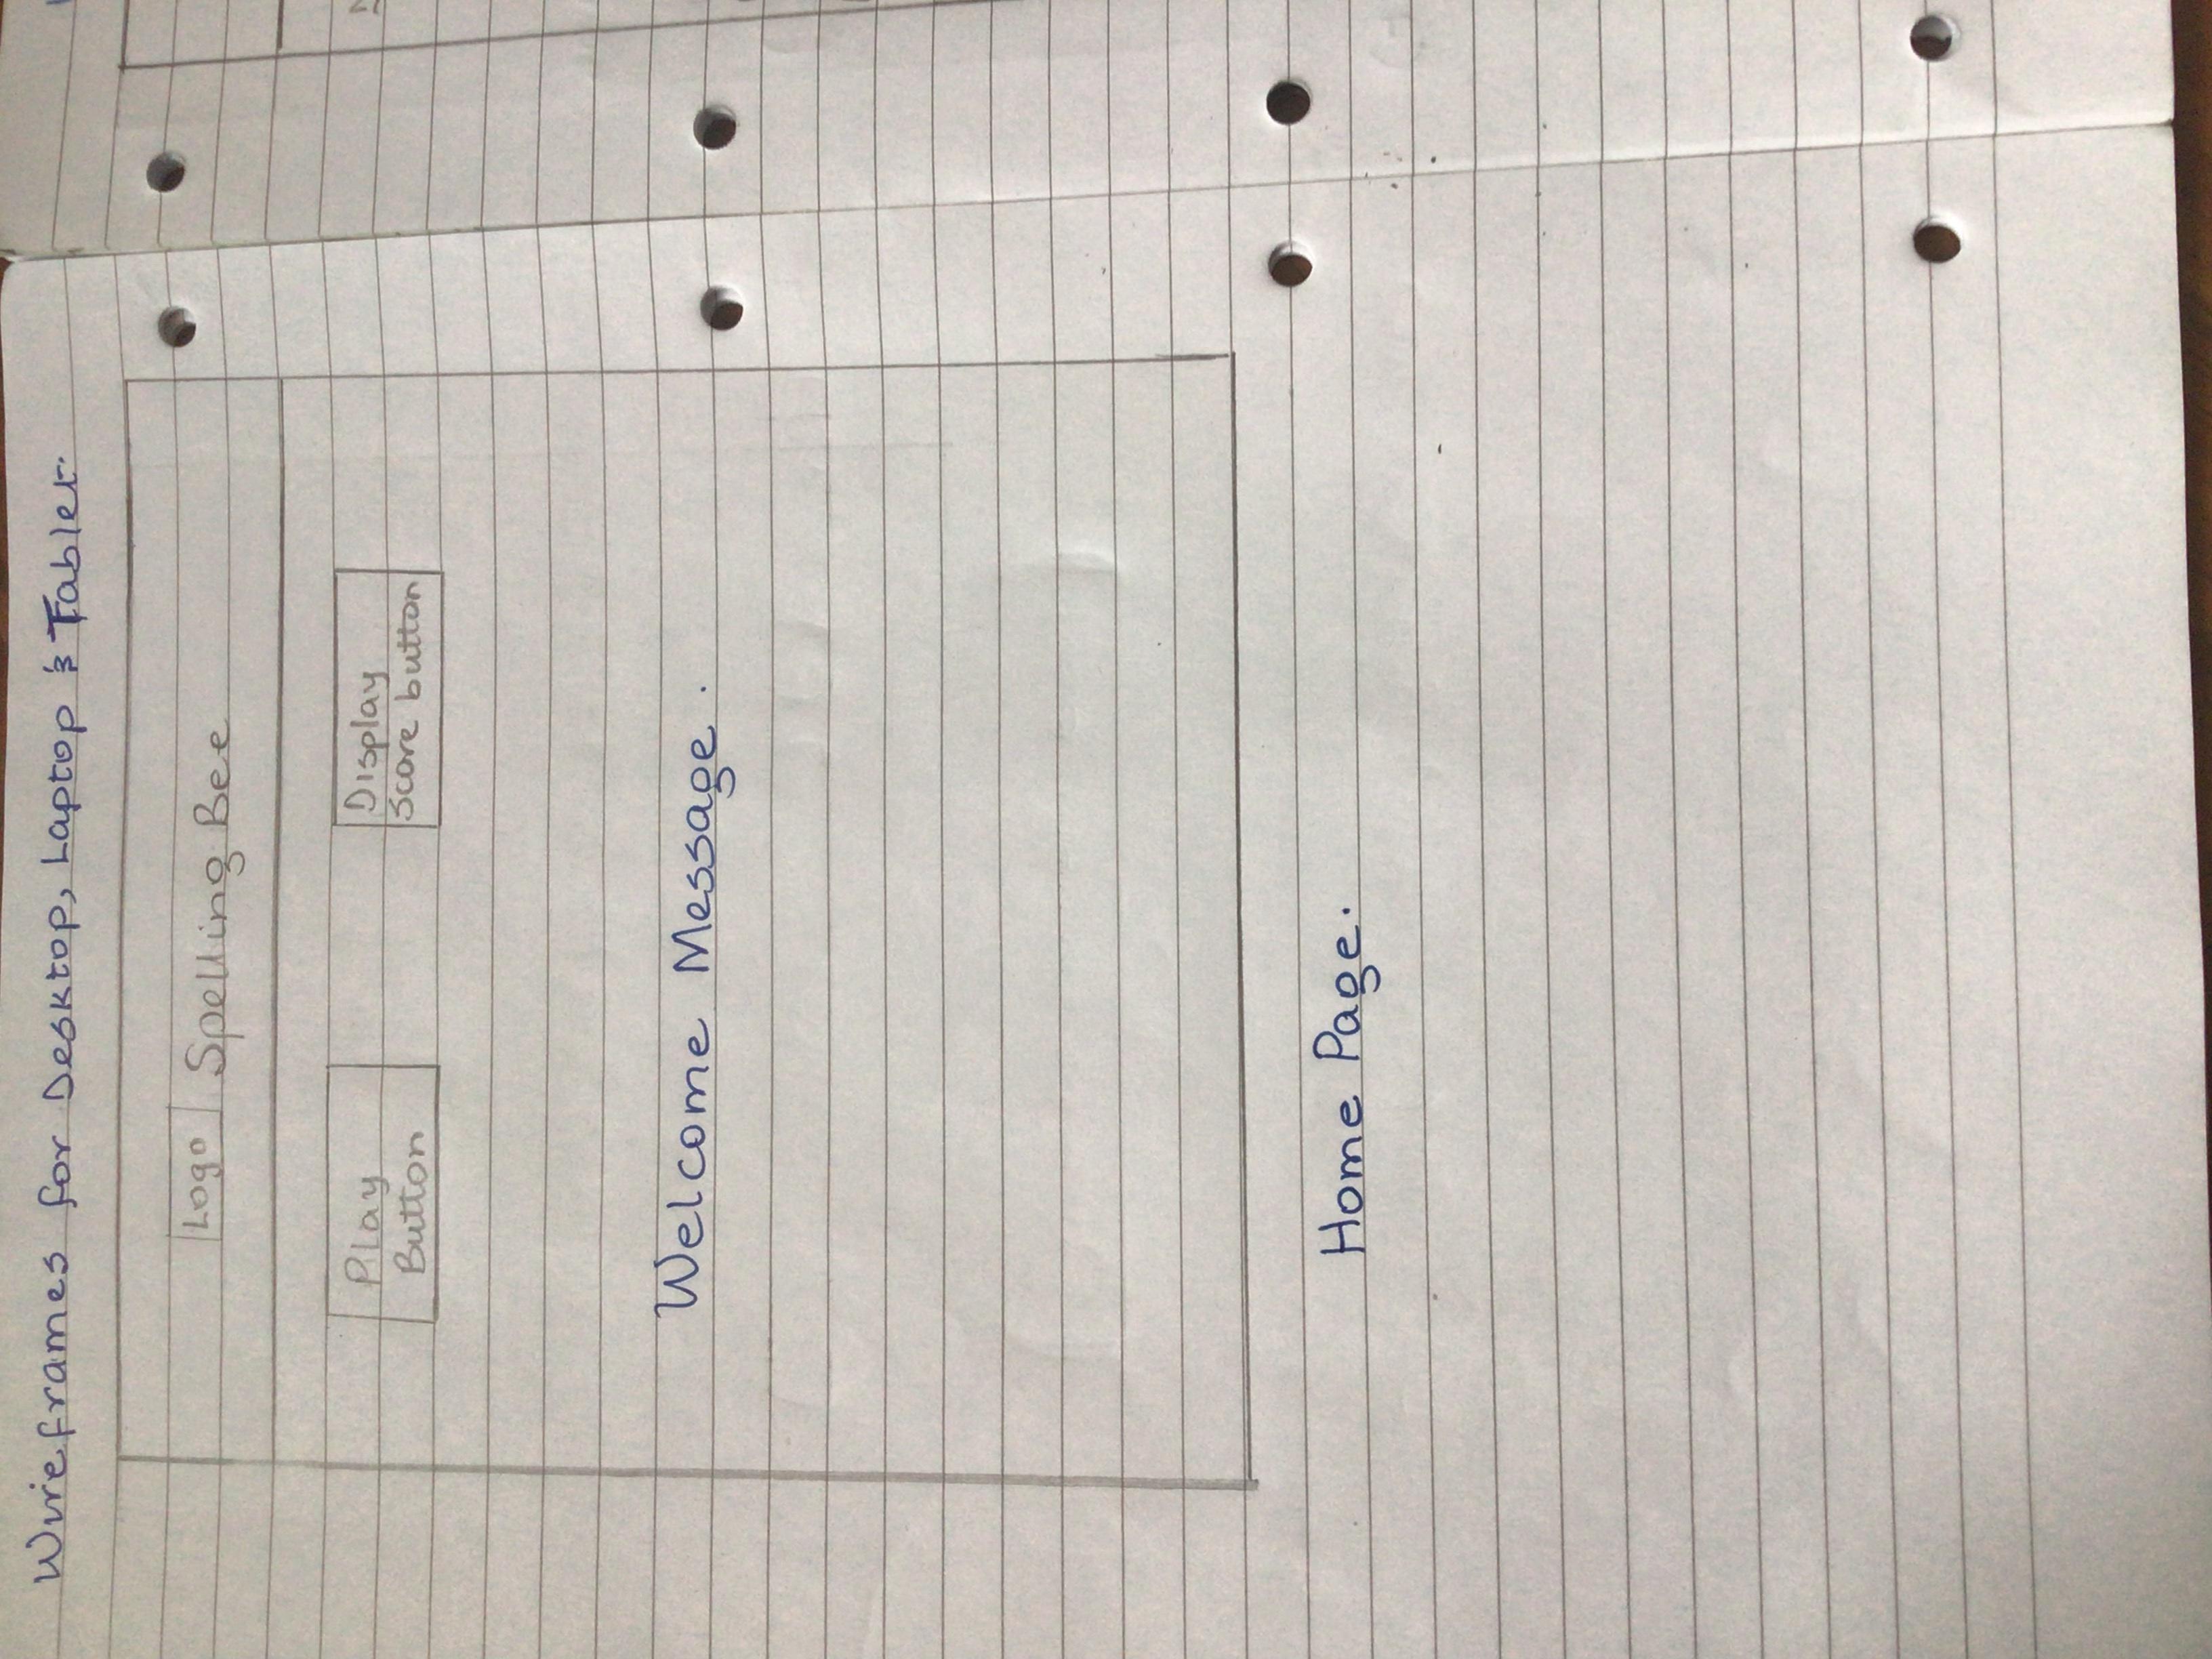 Wireframes for Desktop, Laptop & Tablet.
Logo Spelling Bee
Play
Button
Display
Score button
Welcome Message.
Home Page.